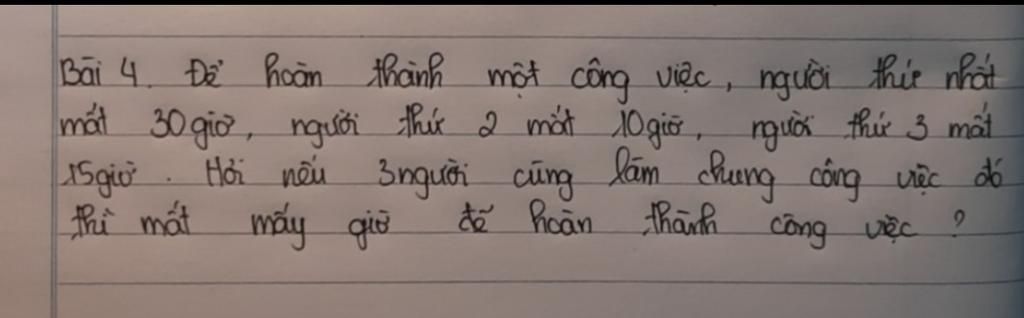 Bài 4. Để hoàn thành một công việc, người thứ nhất
mất 30 giờ, người thứ 2 mất 10 giờ, người thứ 3 mất
15 giờ. Hỏi nếu 3 người cùng làm chung công việc đó
thì mất mấy giờ để hoàn thành công việc?